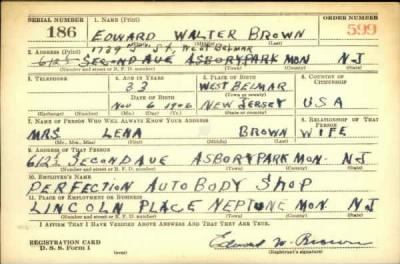 SERIAL NUMBER 1. NAME (Print) ORDER NUMBER
186 EDWARD WALTER BROWN 599
(First) (Middle) (Last)
1739 St, West Belmar
2. ADDRESS (Print)
612½ SECOND AVE ASBORYPARK MON N J
(Number and street or R. F. D. number) (Town) (County) (State)
3. TELEPHONE 4. AGE IN YEARS 5. PLACE OF BIRTH 6. COUNTRY OF CITIZENSHIP
33 WEST BELMAR
DATE OF BIRTH (Town or county)
NOV 6 1906 NEW JERSEY USA
(Exchange) (Number) (Mo.) (Day) (Yr.) (State or country)
7. NAME OF PERSON WHO WILL ALWAYS KNOW YOUR ADDRESS 8. RELATIONSHIP OF THAT PERSON
MRS LENA BROWN WIFE
(Mr., Mrs., Miss) (First) (Middle) (Last)
9. ADDRESS OF THAT PERSON
612½ SECOND AVE ASBORYPARK MON. N J
(Number and street or R. F. D. number) (Town) (County) (State)
10. EMPLOYER'S NAME
PERFECTION AUTO BODY SHOP
11. PLACE OF EMPLOYMENT OR BUSINESS
LINCOLN PLACE NEPTUNE MON. N J
(Number and street or R. F. D. number) (Town) (County) (State)
I AFFIRM THAT I HAVE VERIFIED ABOVE ANSWERS AND THAT THEY ARE TRUE.
REGISTRATION CARD
D. S. S. Form 1 (over) Edward W. Brown
(Registrant's signature)